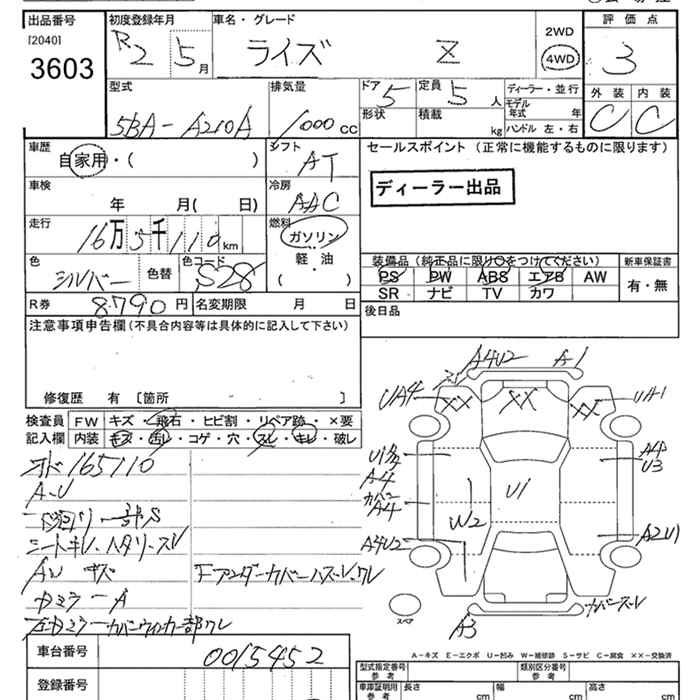 出品番号
[2040]
3603
初度登録年月
R2 5月
車名・グレード
ライズ Z
2WD
4WD
評価点
3
型式
5BA-A210A
排気量
1000 cc
ドア 5
定員 5 人
形状
積載 kg
ディーラー・並行
モデル年式 年
ハンドル 左・右
外装 内装
C C
車歴
自家用・( )
シフト
AT
セールスポイント (正常に機能するものに限ります)
ディーラー出品
車検
年 月( 日)
冷房
AAC
走行
16万5千110km
燃料
ガソリン
軽・油
( )
色
シルバー
色替
色コード
S28
装備品(純正品に限り○をつけてください)
新車保証書
PS PW ABS エアB AW
SR ナビ TV カワ
有・無
R券 8790円
名変期限 月 日
後日品
注意事項申告欄(不具合内容等は具体的に記入して下さい)
修復歴 有 [箇所 ]
検査員記入欄
FW キズ・飛石・ヒビ割・リペア跡・×要
内装 キズ・汚レ・コゲ・穴・スレ・キレ・破レ
165110
A・U
一部S
シートキレ・ヘタリ・スレ
キズ
アンダーカバーハズレ・ワレ
A4U2 A1
UA4 XX XX XX UA1
A4
U3
A4
カバー
A4
U1
W2
A2U1
A4U2
カバースレ
A3
スペア
A-キズ E-エクボ U-凹み W-補修跡 S-サビ C-腐食 ××-交換済
車台番号
0015452
型式指定番号 参考
類別区分番号 参考
登録番号
車庫証明用 参考
長さ cm
幅 cm
高さ cm